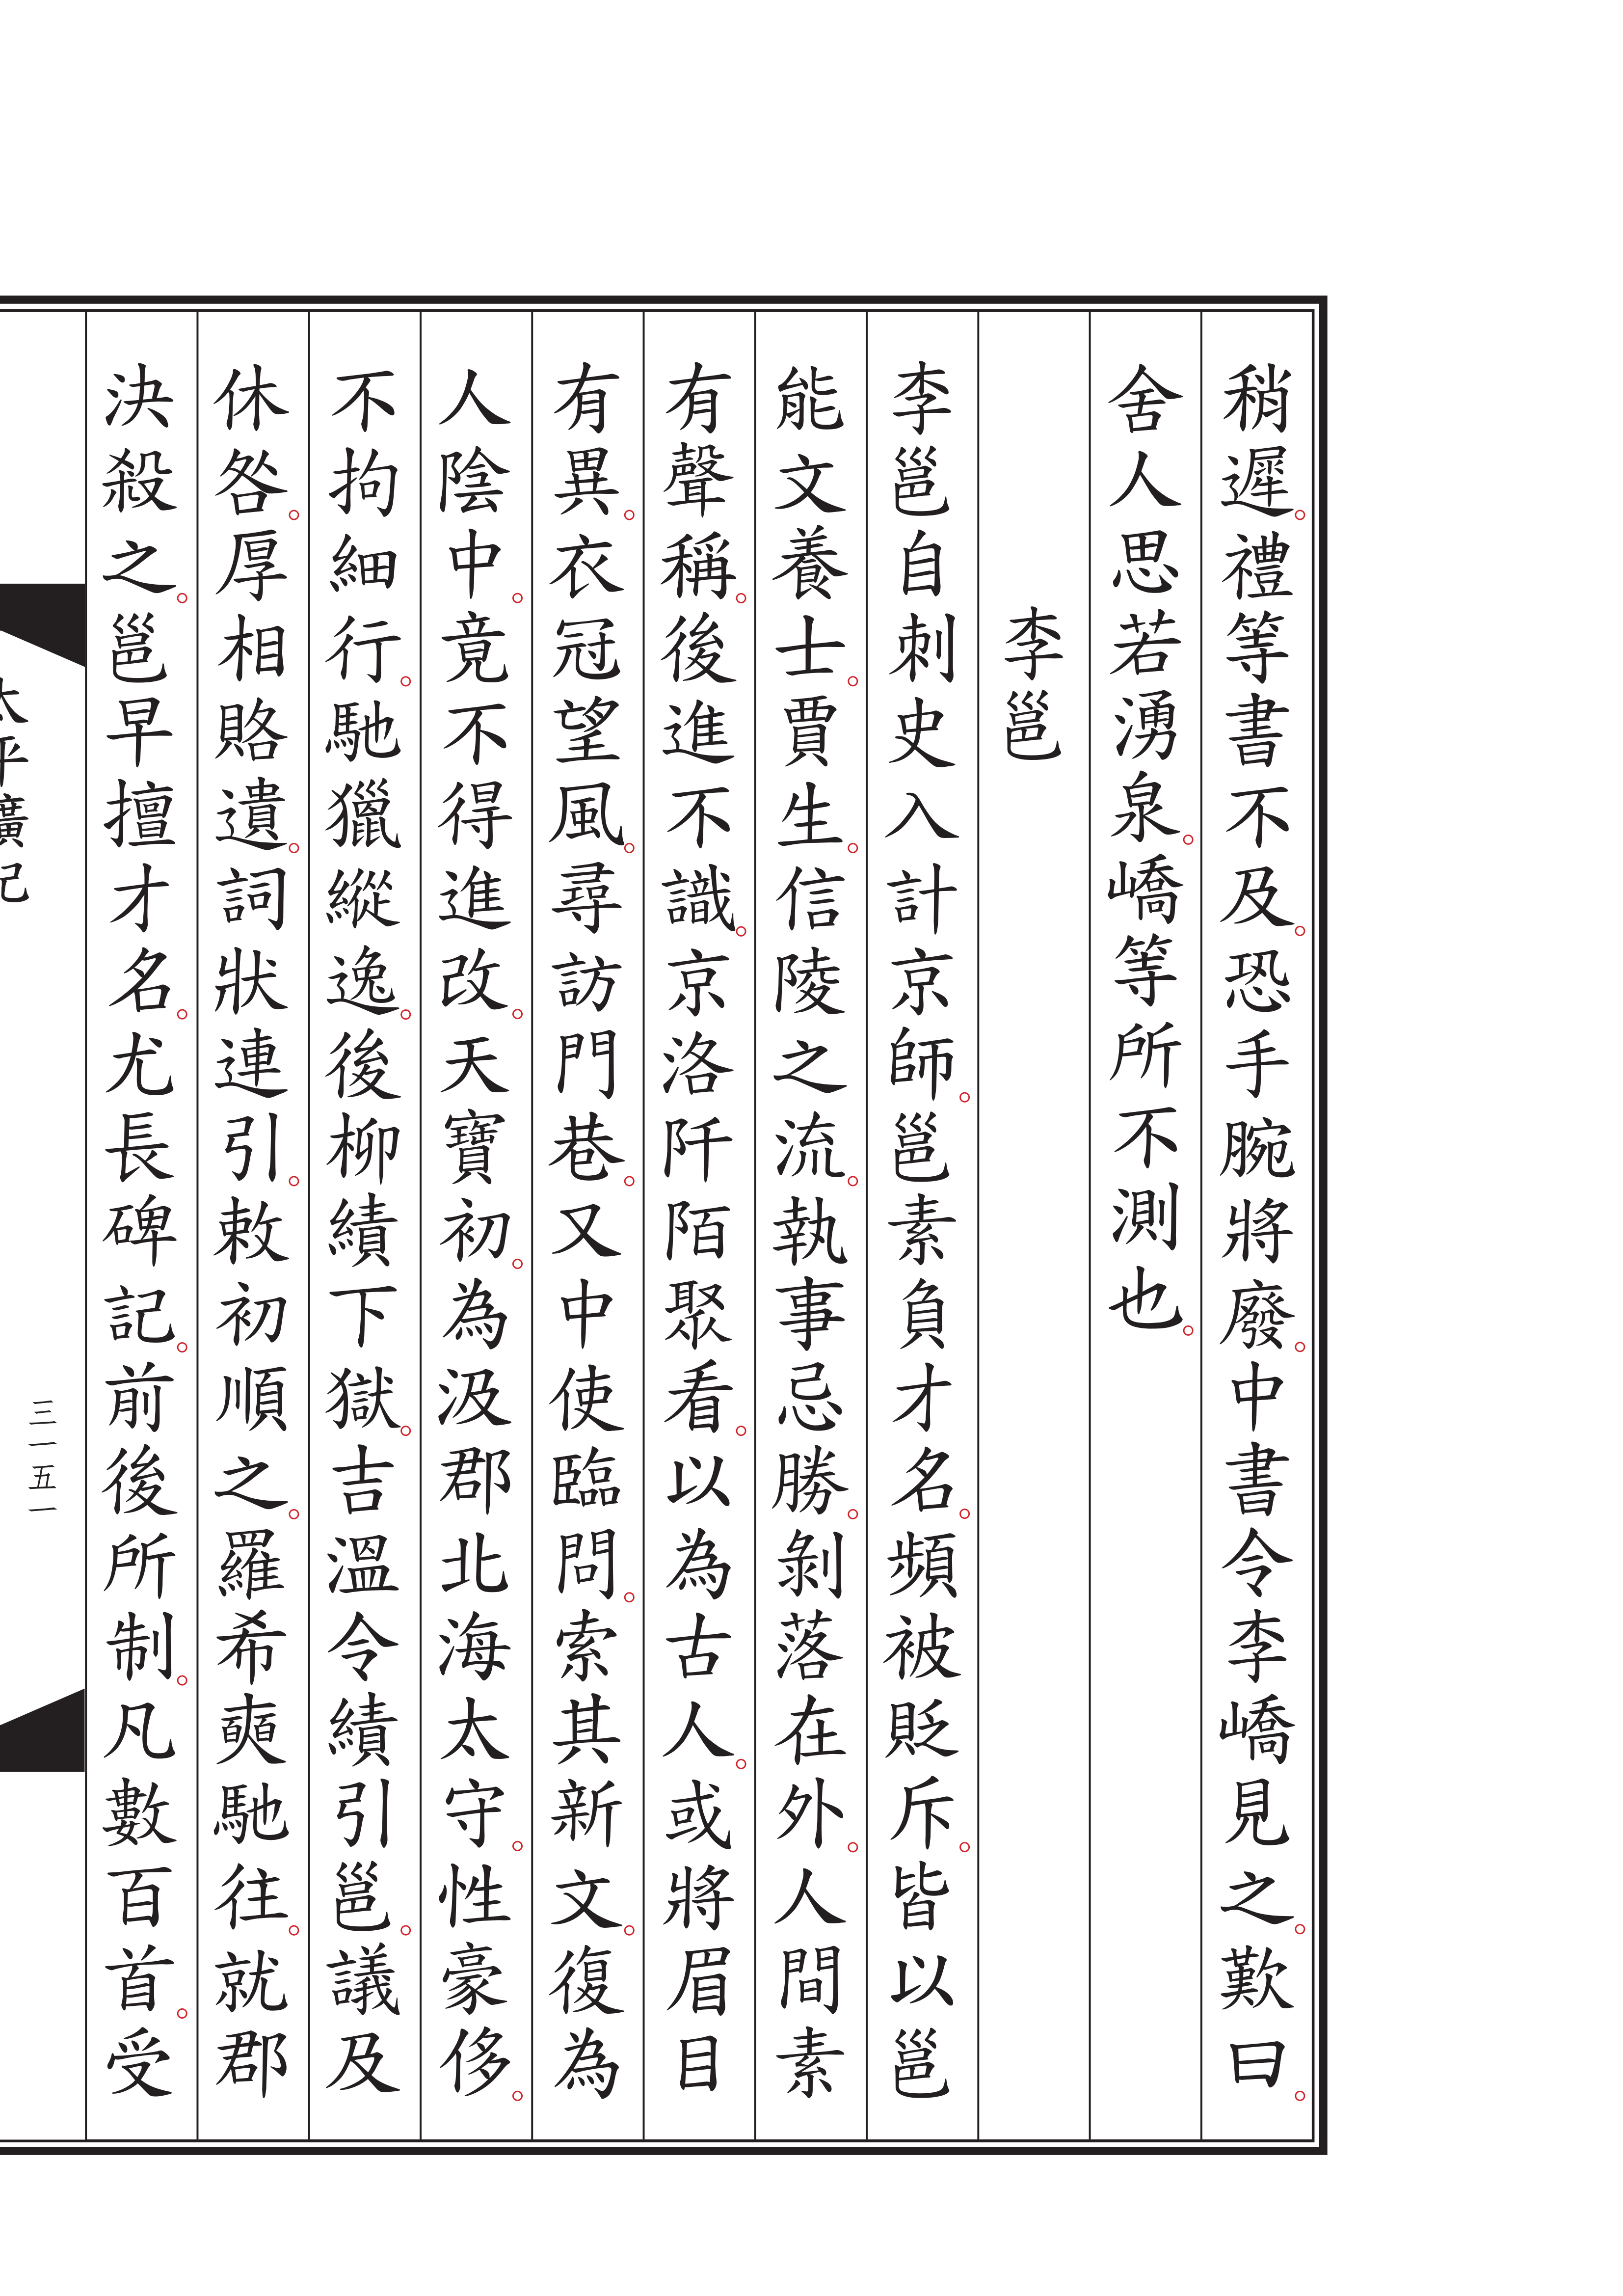 稍遲。禮等書不及。恐手腕將廢。中書令李嶠見之。歎曰。
舍人思若湧泉。嶠等所不測也。
李邕
李邕自刺史入計京師。邕素負才名。頻被貶斥。皆以邕
能文養士。賈生。信陵之流。執事忌勝。剝落在外。人間素
有聲稱。後進不識。京洛阡陌聚看。以為古人。或將眉目
有異。衣冠望風。尋訪門巷。又中使臨問。索其新文。復為
人陰中。竟不得進改。天寶初。為汲郡北海太守。性豪侈。
不拘細行。馳獵縱逸。後柳績下獄。吉溫令績引邕。議及
休咎。厚相賂遺。詞狀連引。敕初順之。羅希奭馳往。就郡
決殺之。邕早擅才名。尤長碑記。前後所制。凡數百首。受
太平廣記
三一五一